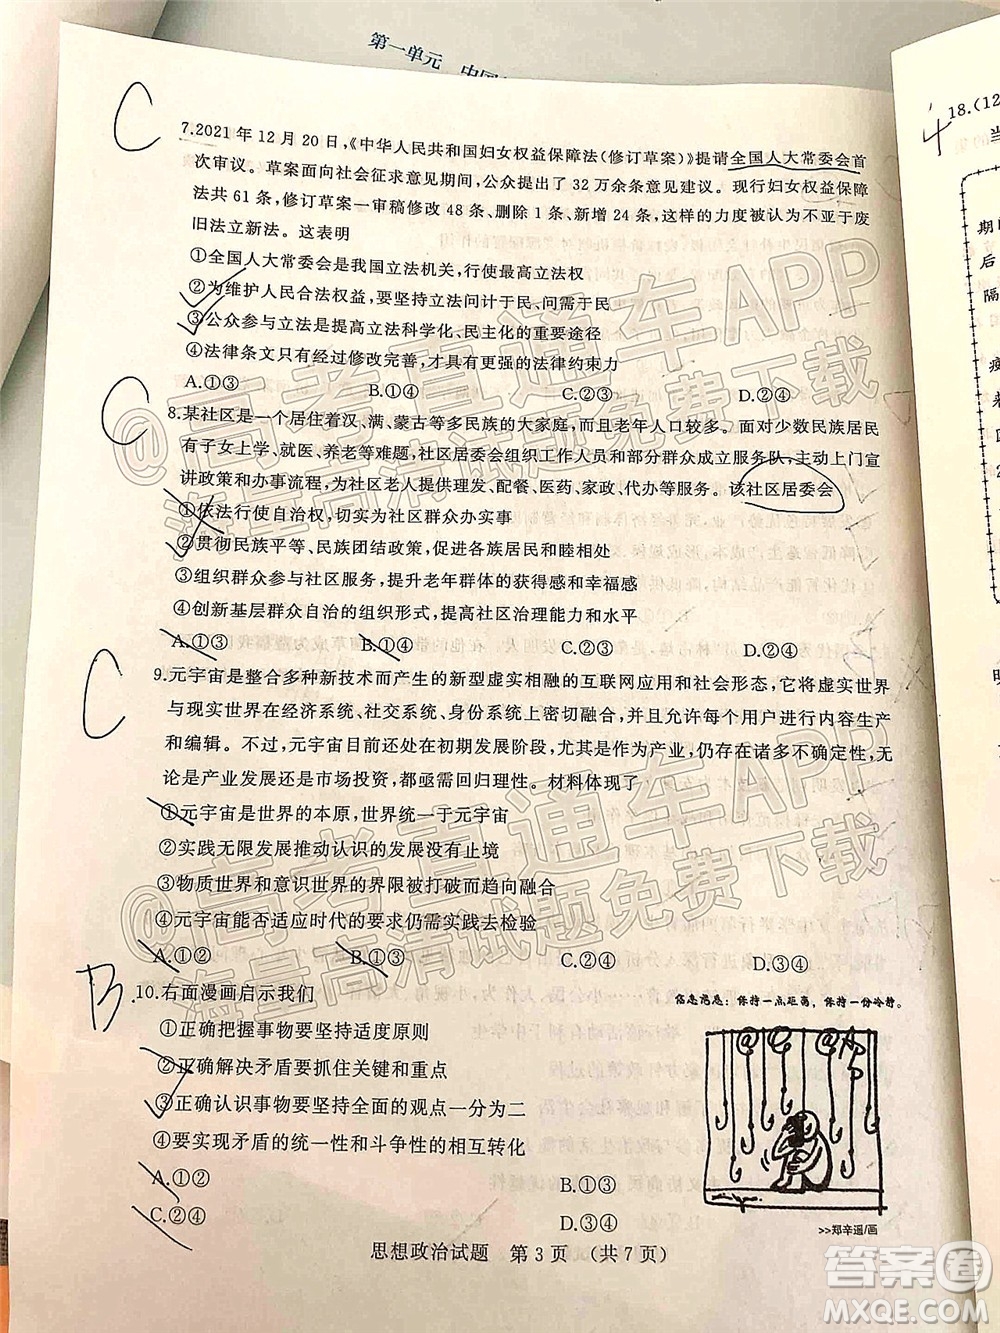 第一单元
C
7.2021年12月20日,《中华人民共和国妇女权益保障法(修订草案)》提请全国人大常委会首
次审议。草案面向社会征求意见期间,公众提出了32万余条意见建议。现行妇女权益保障
法共61条,修订草案一审稿修改48条、删除1条、新增24条,这样的力度被认为不亚于废
旧法立新法。这表明
①全国人大常委会是我国立法机关,行使最高立法权
②为维护人民合法权益,要坚持立法问计于民、问需于民
③公众参与立法是提高立法科学化、民主化的重要途径
④法律条文只有经过修改完善,才具有更强的法律约束力
A.①③ B.①④ C.②③ D.②④
C
8.某社区是一个居住着汉、满、蒙古等多民族的大家庭,而且老年人口较多。面对少数民族居民
有子女上学、就医、养老等难题,社区居委会组织工作人员和部分群众成立服务队,主动上门宣
讲政策和办事流程,为社区老人提供理发、配餐、医药、家政、代办等服务。该社区居委会
①依法行使自治权,切实为社区群众办实事
②贯彻民族平等、民族团结政策,促进各族居民和睦相处
③组织群众参与社区服务,提升老年群体的获得感和幸福感
④创新基层群众自治的组织形式,提高社区治理能力和水平
A.①③ B.①④ C.②③ D.②④
C
9.元宇宙是整合多种新技术而产生的新型虚实相融的互联网应用和社会形态,它将虚实世界
与现实世界在经济系统、社交系统、身份系统上密切融合,并且允许每个用户进行内容生产
和编辑。不过,元宇宙目前还处在初期发展阶段,尤其是作为产业,仍存在诸多不确定性,无
论是产业发展还是市场投资,都亟需回归理性。材料体现了
①元宇宙是世界的本原,世界统一于元宇宙
②实践无限发展推动认识的发展没有止境
③物质世界和意识世界的界限被打破而趋向融合
④元宇宙能否适应时代的要求仍需实践去检验
A.①② B.①③ C.②④ D.③④
B
10.右面漫画启示我们
①正确把握事物要坚持适度原则
②正确解决矛盾要抓住关键和重点
③正确认识事物要坚持全面的观点一分为二
④要实现矛盾的统一性和斗争性的相互转化
A.①② B.①③
C.②④ D.③④
信息思危:保持一点距离,保持一份冷静。
@ e @ APP
>>郑辛遥/画
思想政治试题 第3页 (共7页)
18.(12
当
期
后
隔
疫
@高考直通车APP
海量高清试题免费下载
@高考直通车APP
海量高清试题免费下载
答案圈
MXQE.COM